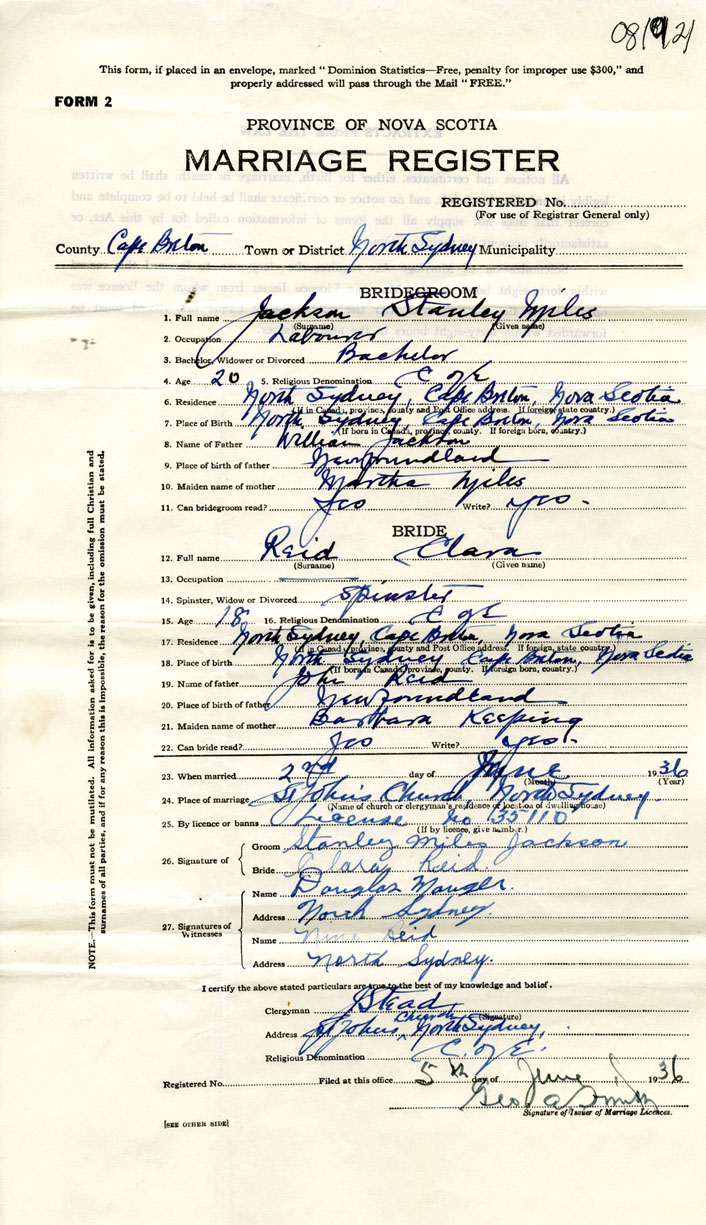 08/921
This form, if placed in an envelope, marked "Dominion Statistics—Free, penalty for improper use $300," and
properly addressed will pass through the Mail "FREE."
FORM 2
PROVINCE OF NOVA SCOTIA
MARRIAGE REGISTER
REGISTERED No.
(For use of Registrar General only)
County Cape Breton Town or District North Sydney Municipality
BRIDEGROOM
1. Full name Jackson Stanley Miles
(Surname) (Given name)
2. Occupation Labourer
3. Bachelor, Widower or Divorced Bachelor
4. Age 20 5. Religious Denomination C of E
6. Residence North Sydney, Cape Breton, Nova Scotia
(If in Canada, province, county and Post Office address. If foreign, state country.)
7. Place of Birth North Sydney, Cape Breton, Nova Scotia
(If born in Canada, province, county. If foreign born, country.)
8. Name of Father William Jackson
9. Place of birth of father Newfoundland
10. Maiden name of mother Martha Miles
11. Can bridegroom read? Yes Write? Yes.
BRIDE
12. Full name Reid Clara
(Surname) (Given name)
13. Occupation
14. Spinster, Widow or Divorced Spinster
15. Age 18 16. Religious Denomination C of E
17. Residence North Sydney, Cape Breton, Nova Scotia
(If in Canada, province, county and Post Office address. If foreign, state country.)
18. Place of birth North Sydney, Cape Breton, Nova Scotia
(If born in Canada, province, county. If foreign born, country.)
19. Name of father John Reid
20. Place of birth of father Newfoundland
21. Maiden name of mother Barbara Keeping
22. Can bride read? Yes Write? Yes.
23. When married 2nd day of June 1936
(Month) (Year)
24. Place of marriage St John's Church, North Sydney.
(Name of church or clergyman's residence or location of dwelling house)
25. By licence or banns License No 135110
(If by licence, give number.)
26. Signature of
Groom Stanley Miles Jackson
Bride Clara Reid.
27. Signatures of Witnesses
Name Douglas Mauger.
Address North Sydney.
Name Nina Reid
Address North Sydney.
I certify the above stated particulars are true to the best of my knowledge and belief.
Clergyman Stead
(Signature)
Address St John's Church, North Sydney,
Religious Denomination C. of E.
Registered No. Filed at this office 5th day of June 1936
Geo A Smith
Signature of Issuer of Marriage Licences.
[SEE OTHER SIDE]
NOTE.—This form must not be mutilated. All information asked for is to be given, including full Christian and
surnames of all parties, and if for any reason this is impossible, the reason for the omission must be stated.